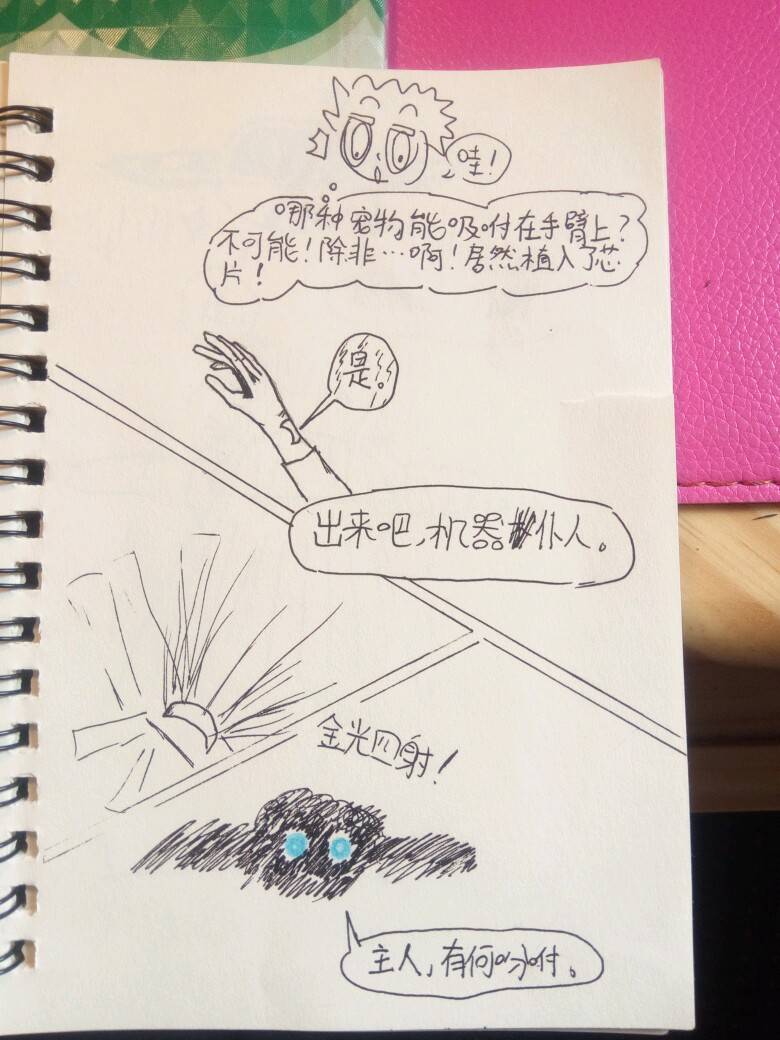 哇!
哪种宠物能吸附在手臂上?
不可能!除非…啊!居然植入了芯
片!
是。
出来吧,机器仆人。
金光四射!
主人,有何吩咐。